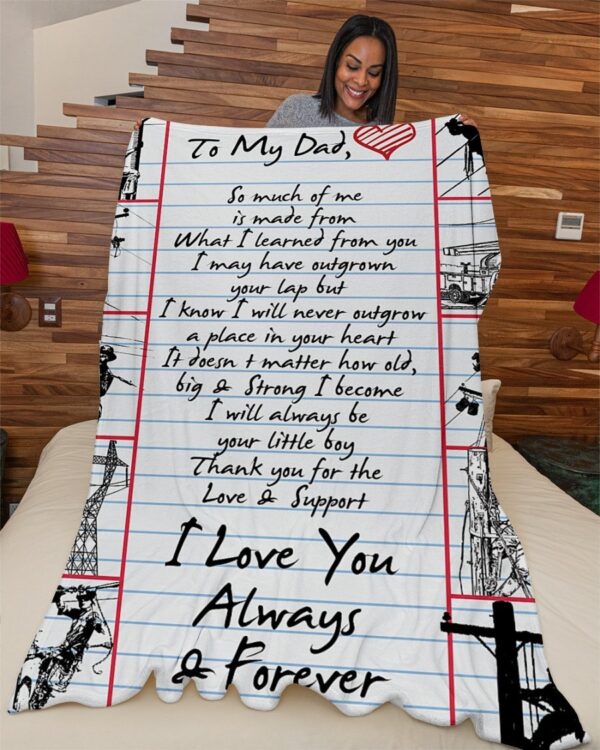 To My Dad,
So much of me
is made from
What I learned from you
I may have outgrown
your lap but
I know I will never outgrow
a place in your heart
It doesn t matter how old,
big & Strong I become
I will always be
your little boy
Thank you for the
Love & Support
I Love You
Always
& Forever